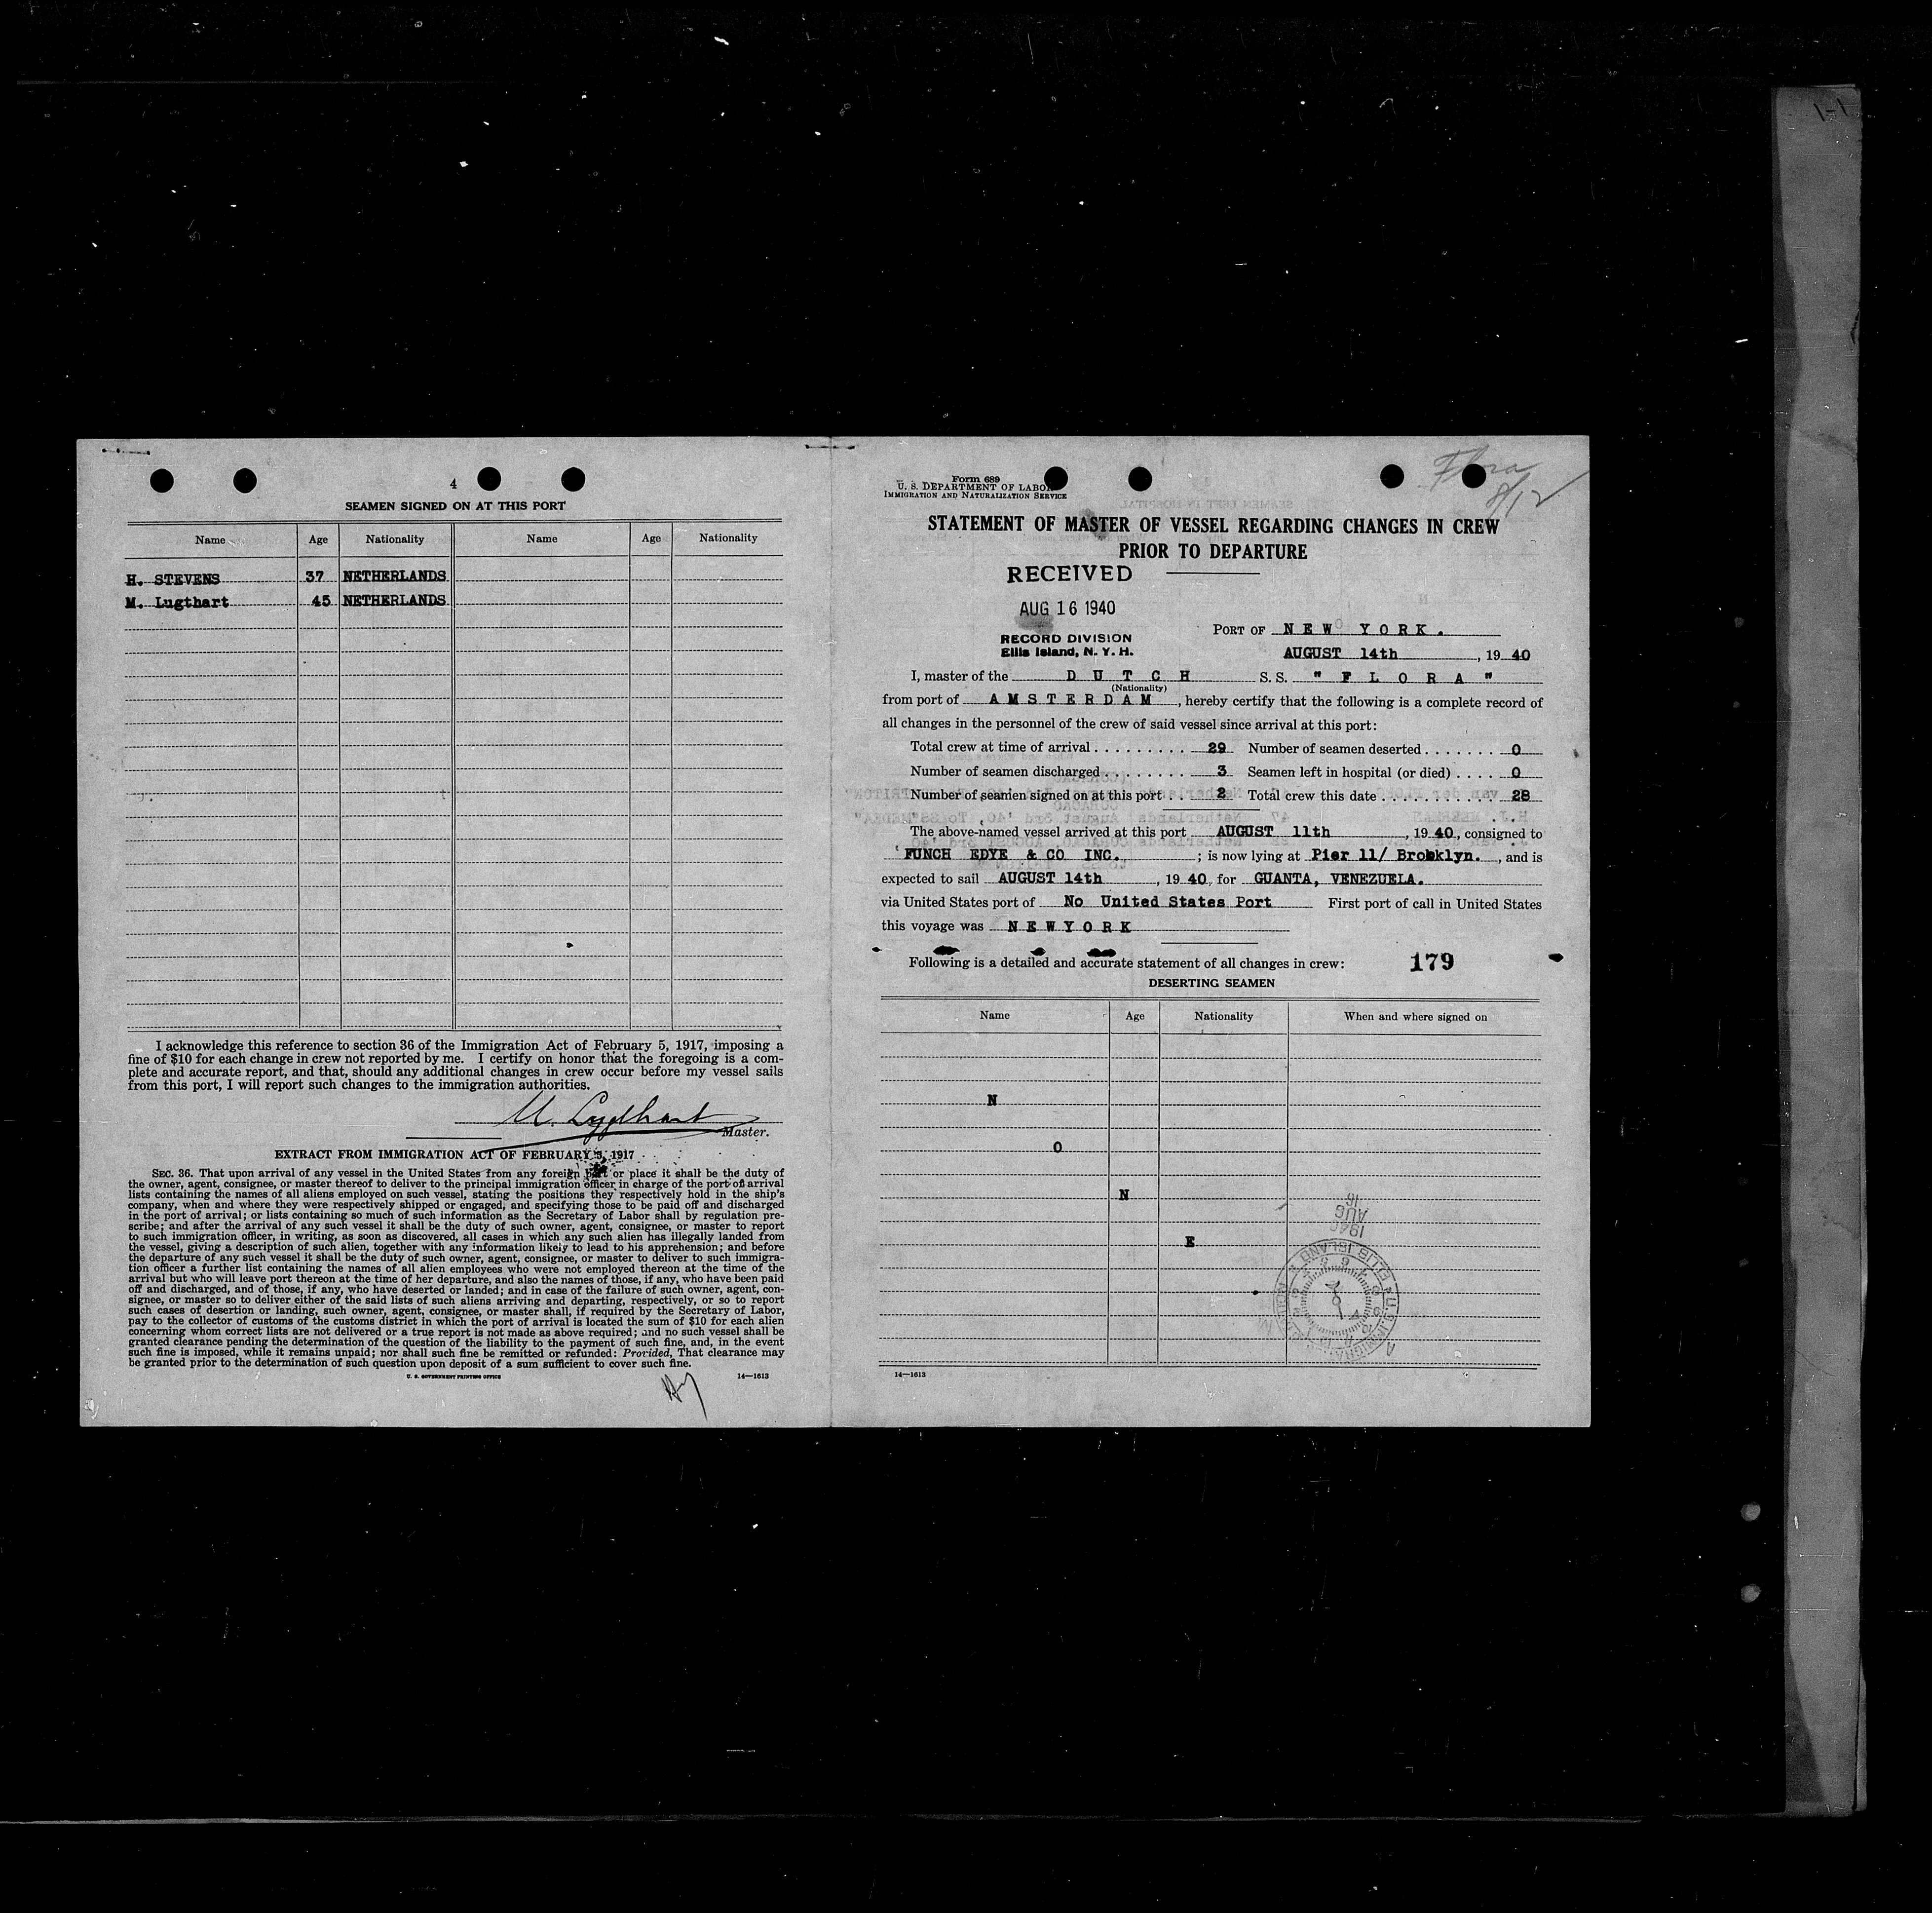 4
SEAMEN SIGNED ON AT THIS PORT
Name Age Nationality Name Age Nationality
H. STEVENS 37 NETHERLANDS
M. Lugthart 45 NETHERLANDS
I acknowledge this reference to section 36 of the Immigration Act of February 5, 1917, imposing a
fine of $10 for each change in crew not reported by me. I certify on honor that the foregoing is a com-
plete and accurate report, and that, should any additional changes in crew occur before my vessel sails
from this port, I will report such changes to the immigration authorities.
M. Lugthart
Master.
EXTRACT FROM IMMIGRATION ACT OF FEBRUARY 5, 1917
SEC. 36. That upon arrival of any vessel in the United States from any foreign port or place it shall be the duty of
the owner, agent, consignee, or master thereof to deliver to the principal immigration officer in charge of the port of arrival
lists containing the names of all aliens employed on such vessel, stating the positions they respectively hold in the ship's
company, when and where they were respectively shipped or engaged, and specifying those to be paid off and discharged
in the port of arrival; or lists containing so much of such information as the Secretary of Labor shall by regulation pre-
scribe; and after the arrival of any such vessel it shall be the duty of such owner, agent, consignee, or master to report
to such immigration officer, in writing, as soon as discovered, all cases in which any such alien has illegally landed from
the vessel, giving a description of such alien, together with any information likely to lead to his apprehension; and before
the departure of any such vessel it shall be the duty of such owner, agent, consignee, or master to deliver to such immigra-
tion officer a further list containing the names of all alien employees who were not employed thereon at the time of the
arrival but who will leave port thereon at the time of her departure, and also the names of those, if any, who have been paid
off and discharged, and of those, if any, who have deserted or landed; and in case of the failure of such owner, agent, con-
signee, or master so to deliver either of the said lists of such aliens arriving and departing, respectively, or so to report
such cases of desertion or landing, such owner, agent, consignee, or master shall, if required by the Secretary of Labor,
pay to the collector of customs of the customs district in which the port of arrival is located the sum of $10 for each alien
concerning whom correct lists are not delivered or a true report is not made as above required; and no such vessel shall be
granted clearance pending the determination of the question of the liability to the payment of such fine, and, in the event
such fine is imposed, while it remains unpaid; nor shall such fine be remitted or refunded: Provided, That clearance may
be granted prior to the determination of such question upon deposit of a sum sufficient to cover such fine.
U. S. GOVERNMENT PRINTING OFFICE 14—1613
Form 689
U. S. DEPARTMENT OF LABOR
IMMIGRATION AND NATURALIZATION SERVICE
Flora
8/12
STATEMENT OF MASTER OF VESSEL REGARDING CHANGES IN CREW
PRIOR TO DEPARTURE
RECEIVED
AUG 16 1940
RECORD DIVISION
Ellis Island, N. Y. H.
PORT OF NEW YORK.
AUGUST 14th, 19 40
I, master of the DUTCH S. S. "FLORA"
(Nationality)
from port of AMSTERDAM, hereby certify that the following is a complete record of
all changes in the personnel of the crew of said vessel since arrival at this port:
Total crew at time of arrival . . . . . . . . . 29 Number of seamen deserted . . . . . . . 0
Number of seamen discharged . . . . . . . . 3 Seamen left in hospital (or died) . . . . 0
Number of seamen signed on at this port . . 2 Total crew this date . . . . . . . . . . . . 28
The above-named vessel arrived at this port AUGUST 11th, 19 40, consigned to
FUNCH EDYE & CO INC. ; is now lying at Pier 11/ Brooklyn. , and is
expected to sail AUGUST 14th, 19 40, for GUANTA, VENEZUELA.
via United States port of No United States Port First port of call in United States
this voyage was NEWYORK
Following is a detailed and accurate statement of all changes in crew: 179
DESERTING SEAMEN
Name Age Nationality When and where signed on
N
O
N
E
1940
AUG
16
14—1613